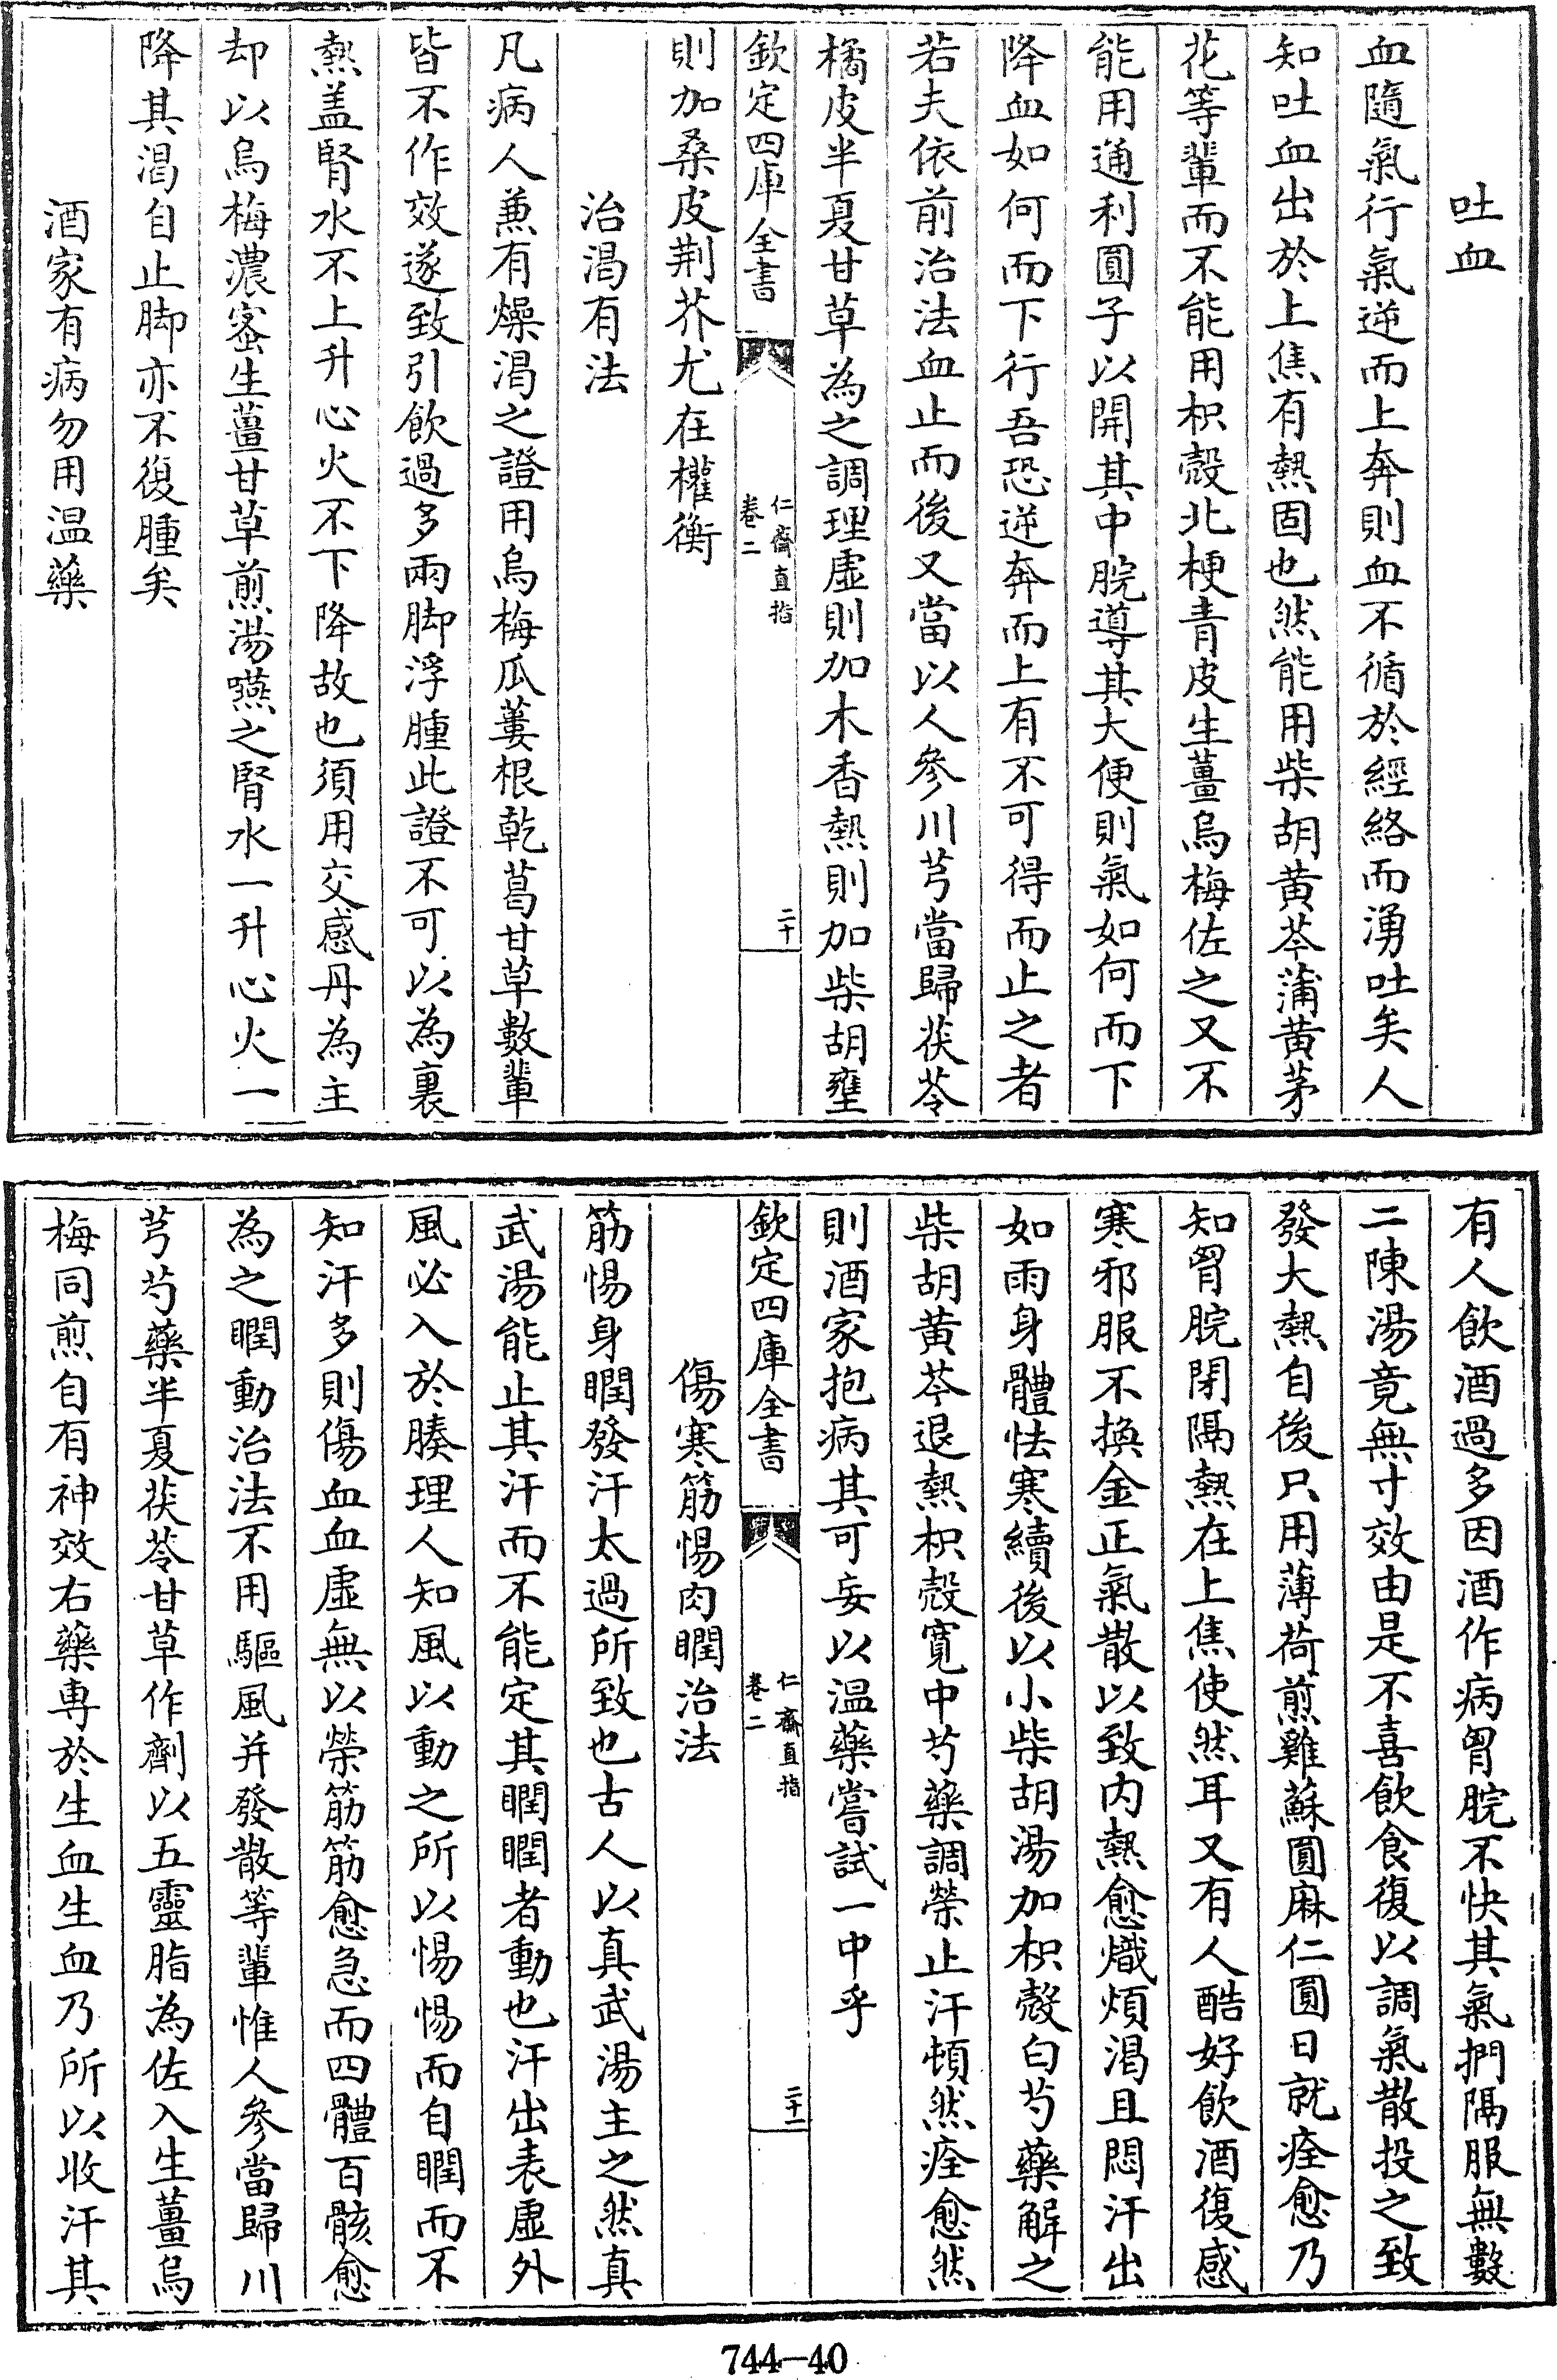 吐血
血隨氣行氣逆而上奔則血不循於經絡而湧吐矣人
知吐血出於上焦有熱固也然能用柴胡黄芩蒲黄茅
花等輩而不能用枳殼北梗青皮生薑烏梅佐之又不
能用通利圓子以開其中脘導其大便則氣如何而下
降血如何而下行吾恐逆奔而上有不可得而止之者
若夫依前治法血止而後又當以人參川芎當歸茯苓
橘皮半夏甘草為之調理虛則加木香熱則加柴胡壅
欽定四庫全書
仁齋直指
卷二
二十
則加桑皮荆芥尤在權衡
治渇有法
凡病人兼有燥渇之證用烏梅瓜蔞根乾葛甘草數輩
皆不作效遂致引飲過多兩脚浮腫此證不可以為裏
熱盖腎水不上升心火不下降故也須用交感丹為主
却以烏梅濃蜜生薑甘草煎湯嚥之腎水一升心火一
降其渇自止脚亦不復腫矣
酒家有病勿用温藥
有人飲酒過多因酒作病胃脘不快其氣捫隔服無數
二陳湯竟無寸效由是不喜飲食復以調氣散投之致
發大熱自後只用薄荷煎雞蘇圓麻仁圓日就痊愈乃
知胃脘閉隔熱在上焦使然耳又有人酷好飲酒復感
寒邪服不換金正氣散以致内熱愈熾煩渇且悶汗出
如雨身體怯寒續後以小柴胡湯加枳殼白芍藥解之
柴胡黄芩退熱枳殼寛中芍藥調榮止汗頓然痊愈然
則酒家抱病其可妄以温藥嘗試一中乎
欽定四庫全書
仁齋直指
卷二
二十一
傷寒筋惕肉瞤治法
筋惕身瞤發汗太過所致也古人以真武湯主之然真
武湯能止其汗而不能定其瞤瞤者動也汗出表虛外
風必入於腠理人知風以動之所以惕惕而自瞤而不
知汗多則傷血血虛無以榮筋筋愈急而四體百骸愈
為之瞤動治法不用驅風并發散等輩惟人參當歸川
芎芍藥半夏茯苓甘草作劑以五靈脂為佐入生薑烏
梅同煎自有神效右藥専於生血生血乃所以收汗其
744-40